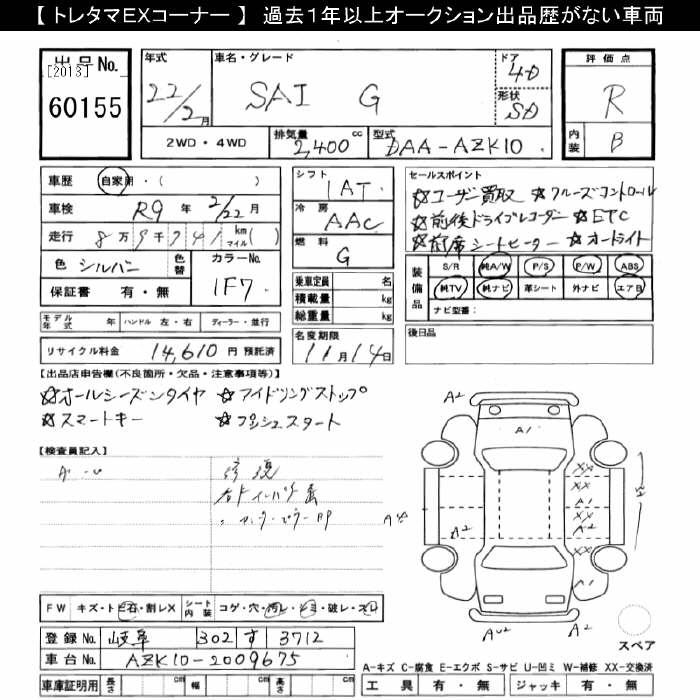 【 トレタマEXコーナー 】 過去1年以上オークション出品歴がない車両
出品No.
[2013]
60155
年式
22/2月
車名・グレード
SAI G
ドア
4D
形状
SD
2WD・4WD
排気量
2,400 cc
型式
DAA-AZK10
評価点
R
内装
B
車歴 自家用・( )
車検 R9年 2/22月
走行 8万9千741 km マイル( )
色 シルバー 色替
カラーNo.
1F7
保証書 有・無
シフト
1AT
冷房
AAC
燃料
G
乗車定員 名
積載量 kg
総重量 kg
セールスポイント
☆ユーザー買取 ☆クルーズコントロール
☆前後ドライブレコーダー ☆ETC
☆前席シートヒーター ☆オートライト
装備品
S/R 純A/W P/S P/W ABS
純TV 純ナビ 革シート 外ナビ エアB
ナビ型番:
モデル年式 年 ハンドル 左・右 ディーラー・並行
名変期限
11月14日
後日品
リサイクル料金 14,610 円 預託済
【出品店申告欄(不良箇所・欠品・注意事項等)】
☆オールシーズンタイヤ ☆アイドリングストップ
☆スマートキー ☆プッシュスタート
【検査員記入】
修復
A2
A1
XX
XX
A1
XX
A2
A2
A1
FW キズ・トビ石・割レX シート内装 コゲ・穴・汚レ・シミ・破レ・スレ
登録No. 岐阜 302 す 3712
車台No. AZK10-2009675
車庫証明用 長さ cm 幅 cm 高さ cm
スペア
A-キズ C-腐食 E-エクボ S-サビ U-凹ミ W-補修 XX-交換済
工具 有・無 ジャッキ 有・無